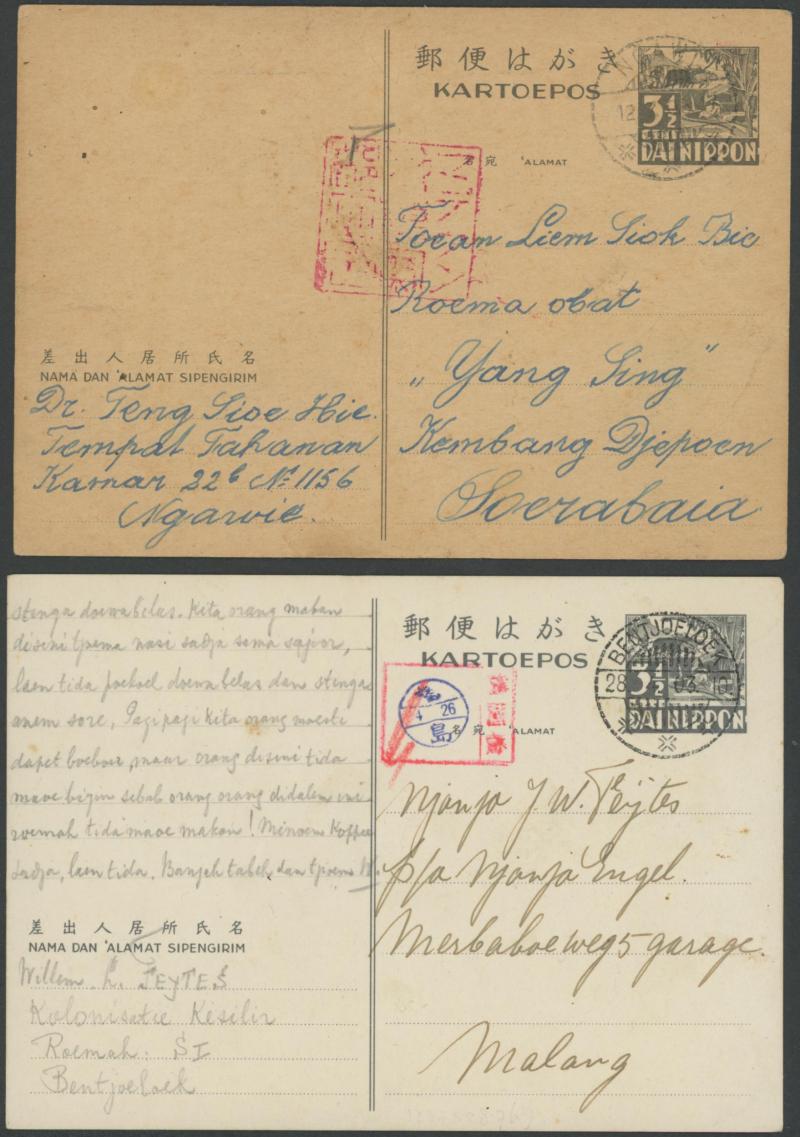 郵便はがき
KARTOEPOS
3½
CENT
DAI NIPPON
12
名宛 'ALAMAT
Toean Liem Siok Bie
Roema obat
„Yang Sing"
Kembang Djepoen
Soerabaia
差出人居所氏名
NAMA DAN 'ALAMAT SIPENGIRIM
Dr. Teng Sioe Hie.
Tempat Tahanan
Kamar 22b No 1156
Ngawie.
stenga doewabelas. Kita orang makan
disini tjoema nasi sadja sama sajoer,
laen tida poekoel doewa belas dan stenga
anem sore, Pagi pagi kita orang moesti
dapet boeboer, maar orang disini tida
maoe bigin sebab orang orang didalem ini
roemah tida maoe makan! Minoem Koppie
sadja, laen tida. Banjak tabeh dan tjioem W.
差出人居所氏名
NAMA DAN 'ALAMAT SIPENGIRIM
Willem L. FEYTES
Kolonisatie Kesilir
Roemah: SI
Bentjoeloek
郵便はがき
KARTOEPOS
3½
CENT
DAI NIPPON
BENTJOELOEK
28 03 10
4 26
島
名宛 'ALAMAT
Njonja J.W. Feytes
p/a Njonja Engel.
Merbaboeweg 5 garage.
Malang